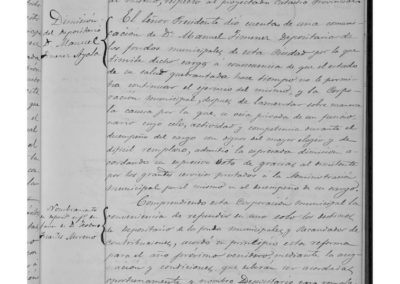 Dimisión
del depositario
D. Manuel
Jimenez Ayala
El Señor Presidente dió cuenta de una comuni-
cacion de D. Manuel Jimenez Depositario de
los fondos municipales de esta Ciudad por la que
dimite dicho cargo a consecuencia de que el estado
de su salud quebrantada hace tiempo no le permi-
tia continuar el ejercicio del mismo, y la Corpo-
racion municipal, despues de lamentar sobre manera
la causa por la que se veia privada de un funcio-
nario cuyo celo, actividad y competencia durante el
desempeño del cargo son dignos del mayor elogio y de
dificil remplazo, admitio la expresada dimision a-
cordando un expresivo voto de gracias al dimitente
por los grandes servicios prestados a la Administracion
municipal por el mismo en el desempeño de su cargo.
Nombramiento
Moreno
Comprendiendo esta Corporacion municipal la
conveniencia de refundir en uno solo los destinos
de depositario de los fondos municipales y Recaudador de
contribuciones, acordó en principio esta reforma
para el año proximo venidero, mediante la asig-
nacion y condiciones que estaran ser acordadas
oportunamente y nombro Depositario